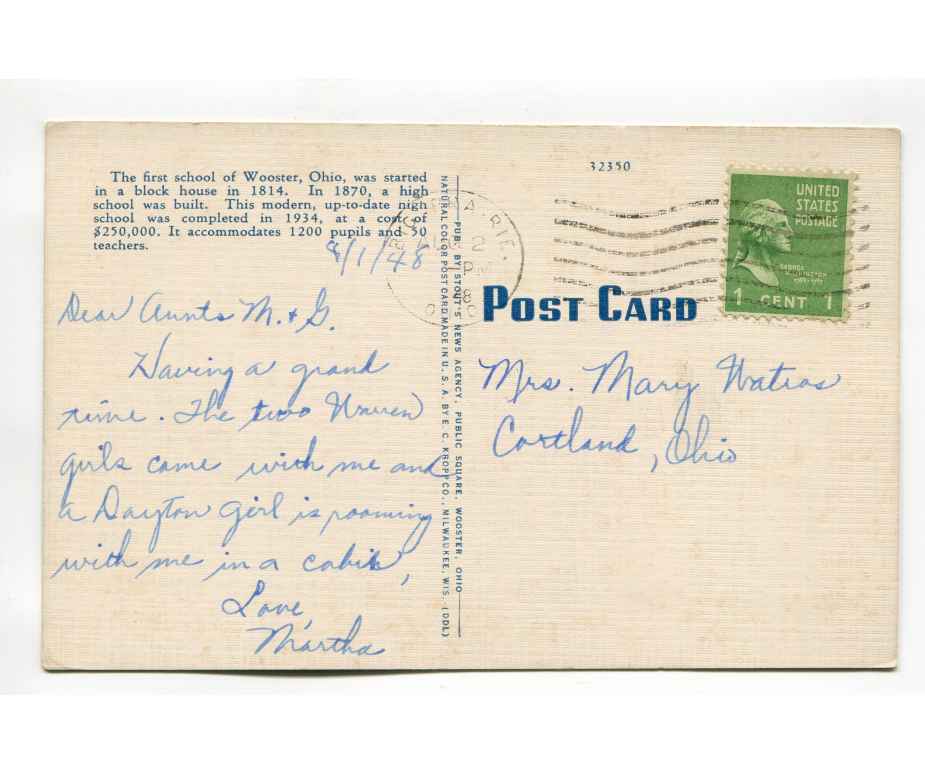 The first school of Wooster, Ohio, was started
in a block house in 1814. In 1870, a high
school was built. This modern, up-to-date high
school was completed in 1934, at a cost of
$250,000. It accommodates 1200 pupils and 50
teachers.
8/1/48
Dear Aunts M. & G.
Having a grand
time. The two Warren
girls came with me and
a Dayton girl is rooming
with me in a cabin,
Love,
Martha
PUB. BY STOUT'S NEWS AGENCY, PUBLIC SQUARE, WOOSTER, OHIO
NATURAL COLOR POST CARD MADE IN U. S. A. BY E. C. KROPP CO., MILWAUKEE, WIS. (DDL)
32350
2
PM
POST CARD
UNITED
STATES
POSTAGE
GEORGE
WASHINGTON
1 CENT 1
Mrs. Mary Watros
Cortland, Ohio